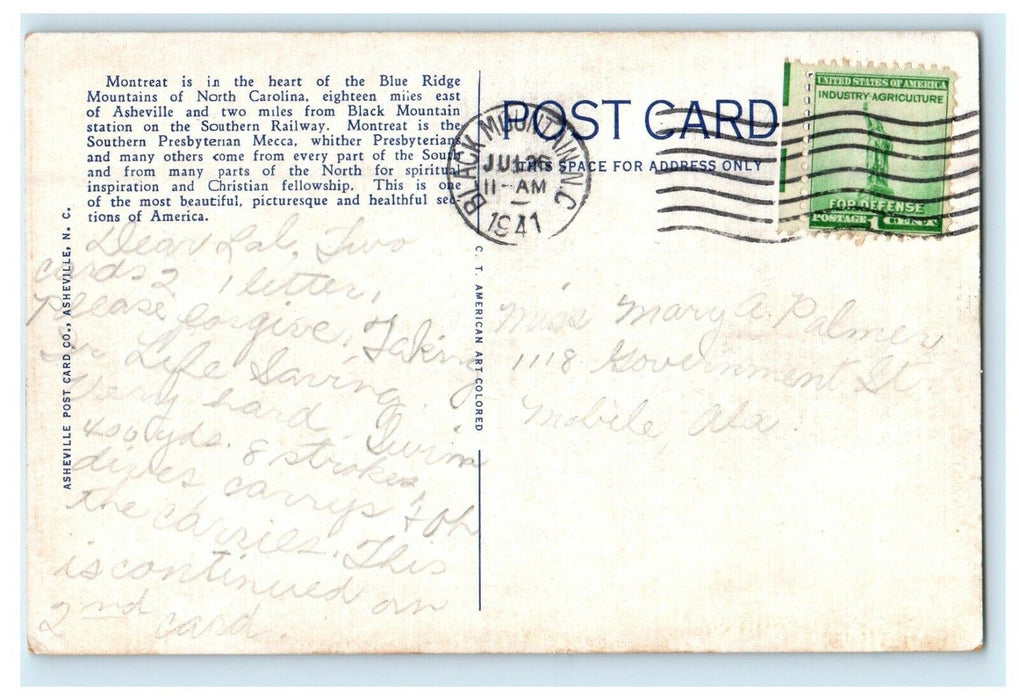 Montreat is in the heart of the Blue Ridge
Mountains of North Carolina, eighteen miles east
of Asheville and two miles from Black Mountain
station on the Southern Railway. Montreat is the
Southern Presbyterian Mecca, whither Presbyterians
and many others come from every part of the South
and from many parts of the North for spiritual
inspiration and Christian fellowship. This is one
of the most beautiful, picturesque and healthful sec-
tions of America.
ASHEVILLE POST CARD CO., ASHEVILLE, N. C.
Dear Lal, Two
cards 2 1 letter,
Please forgive, Taking
Sr Life Saving.
Very hard. Swim
400 yds. 8 strokes
dives carrys & oh
the carries. This
is continued on
2nd card.
C. T. AMERICAN ART COLORED
POST CARD
THIS SPACE FOR ADDRESS ONLY
BLACK MOUNTAIN, N.C.
JUL 26
11-AM
1941
UNITED STATES OF AMERICA
INDUSTRY-AGRICULTURE
FOR DEFENSE
POSTAGE 1 CENT
Miss Mary A. Palmer
1118 Government St
Mobile, Ala.